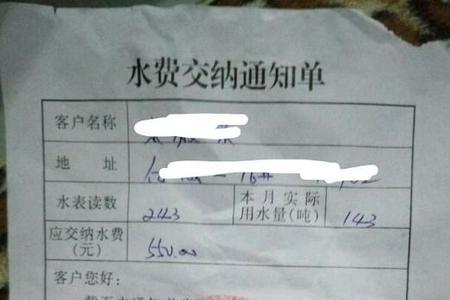 水费交纳通知单
客户名称
地 址
水表读数 243 本月实际用水量(吨) 143
应交纳水费(元) 550.00
客户您好: